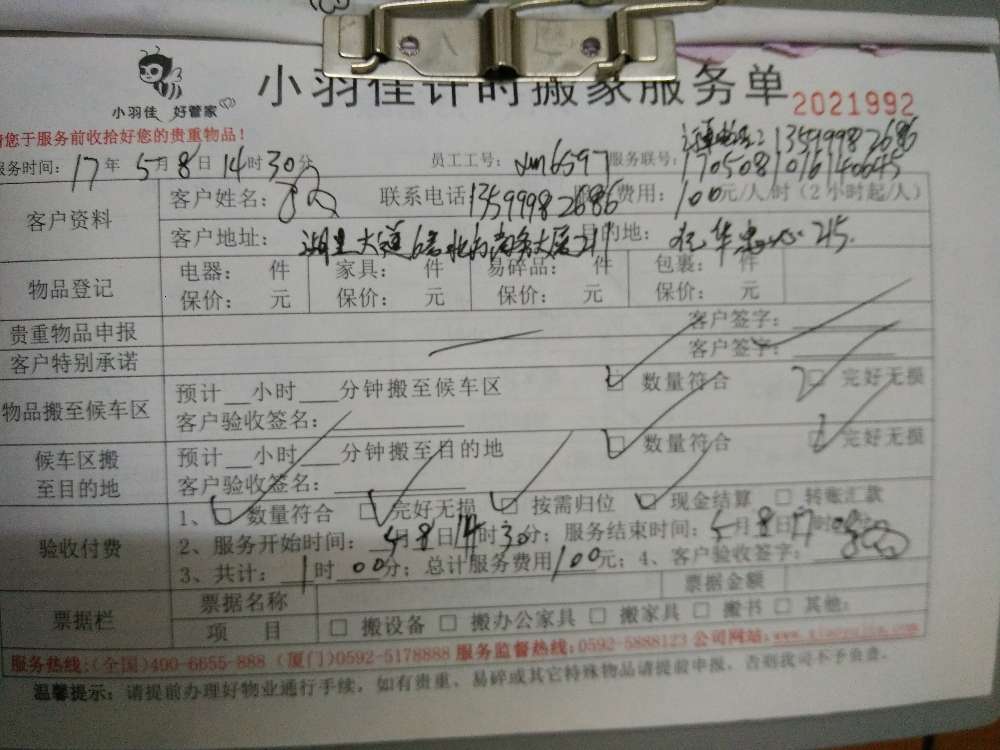 小羽佳 好管家
小羽佳计时搬家服务单 2021992
请您于服务前收拾好您的贵重物品！ 13599982686
服务时间：17年5月8日14时30分 员工工号：xm6597 服务联号：
客户资料 客户姓名： 联系电话13599982686 费用：100元/人/时（2小时起/人）
客户地址：湖里大道6号 商务大厦211 目的地： 215.
物品登记 电器： 件 家具： 件 易碎品： 件 包裹： 件
保价： 元 保价： 元 保价： 元 保价： 元
贵重物品申报 客户签字：
客户特别承诺 客户签字：
物品搬至候车区 预计__小时___分钟搬至候车区 □ 数量符合 □ 完好无损
客户验收签名：
候车区搬至目的地 预计__小时___分钟搬至目的地 □ 数量符合 □ 完好无损
客户验收签名：
验收付费 1、□ 数量符合 □ 完好无损 □ 按需归位 □ 现金结算 □ 转账汇款
2、服务开始时间：5月8日14时30分；服务结束时间：5月8日17时00分；
3、共计：1时00分；总计服务费用100元；4、客户验收签字：
票据栏 票据名称 票据金额
项 目 □ 搬设备 □ 搬办公家具 □ 搬家具 □ 搬书 □ 其他：
服务热线：(全国)400-6655-888 (厦门)0592-5178888 服务监督热线：0592-5888123 公司网站：
温馨提示：请提前办理好物业通行手续，如有贵重、易碎或其它特殊物品请提前申报，否则我司不予负责。